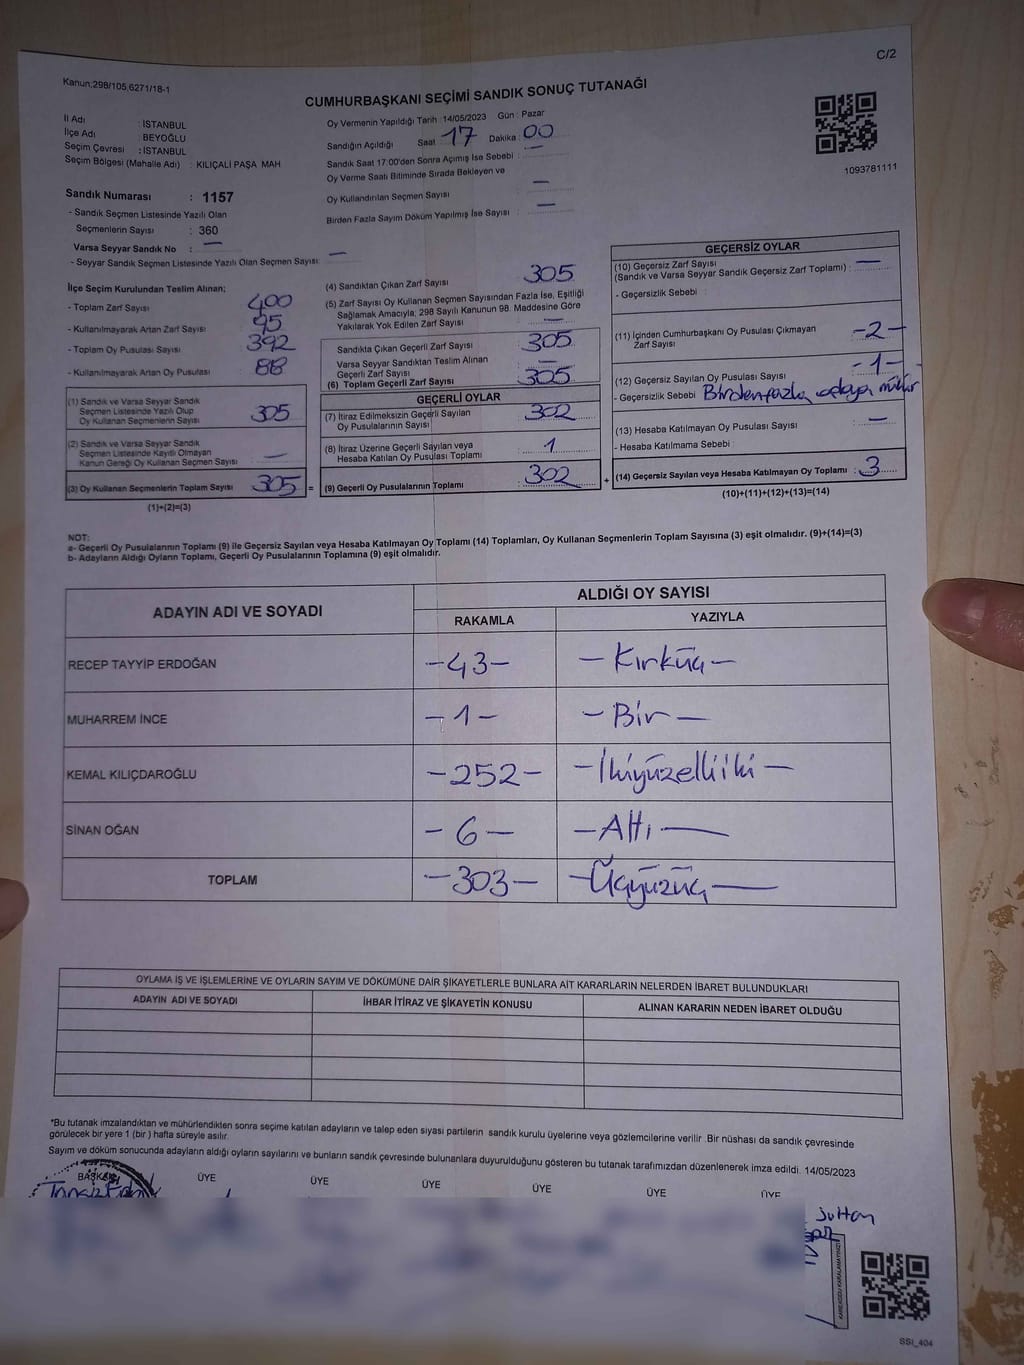 C/2
Kanun;298/105,6271/18-1
CUMHURBAŞKANI SEÇİMİ SANDIK SONUÇ TUTANAĞI
İl Adı : İSTANBUL
İlçe Adı : BEYOĞLU
Seçim Çevresi : İSTANBUL
Seçim Bölgesi (Mahalle Adı) : KILIÇALİ PAŞA MAH
Sandık Numarası : 1157
- Sandık Seçmen Listesinde Yazılı Olan
Seçmenlerin Sayısı : 360
Varsa Seyyar Sandık No : —
- Seyyar Sandık Seçmen Listesinde Yazılı Olan Seçmen Sayısı: —
Oy Vermenin Yapıldığı Tarih 14/05/2023 Gün : Pazar
Sandığın Açıldığı Saat 17 Dakika 00
Sandık Saat 17:00'den Sonra Açımış İse Sebebi : —
Oy Verme Saati Bitiminde Sırada Bekleyen ve
Oy Kullandırılan Seçmen Sayısı —
Birden Fazla Sayım Döküm Yapılmış İse Sayısı : —
1093781111
İlçe Seçim Kurulundan Teslim Alınan;
- Toplam Zarf Sayısı 400
- Kullanılmayarak Artan Zarf Sayısı 95
- Toplam Oy Pusulası Sayısı 392
- Kullanılmayarak Artan Oy Pusulası 88
(1) Sandık ve Varsa Seyyar Sandık
Seçmen Listesinde Yazılı Olup
Oy Kullanan Seçmenlerin Sayısı : 305
(2) Sandık ve Varsa Seyyar Sandık
Seçmen Listesinde Kayıtlı Olmayan
Kanun Gereği Oy Kullanan Seçmen Sayısı : —
(3) Oy Kullanan Seçmenlerin Toplam Sayısı 305 =
(1)+(2)=(3)
(4) Sandıktan Çıkan Zarf Sayısı 305
(5) Zarf Sayısı Oy Kullanan Seçmen Sayısından Fazla İse, Eşitliği
Sağlamak Amacıyla; 298 Sayılı Kanunun 98. Maddesine Göre
Yakılarak Yok Edilen Zarf Sayısı : —
Sandıkta Çıkan Geçerli Zarf Sayısı : 305
Varsa Seyyar Sandıktan Teslim Alınan
Geçerli Zarf Sayısı : —
(6) Toplam Geçerli Zarf Sayısı : 305
GEÇERLİ OYLAR
(7) İtiraz Edilmeksizin Geçerli Sayılan
Oy Pusulalarının Sayısı : 302
(8) İtiraz Üzerine Geçerli Sayılan veya
Hesaba Katılan Oy Pusulası Toplamı : 1
(9) Geçerli Oy Pusulalarının Toplamı : 302 +
GEÇERSİZ OYLAR
(10) Geçersiz Zarf Sayısı
(Sandık ve Varsa Seyyar Sandık Geçersiz Zarf Toplamı) : —
- Geçersizlik Sebebi :
(11) İçinden Cumhurbaşkanı Oy Pusulası Çıkmayan
Zarf Sayısı -2-
(12) Geçersiz Sayılan Oy Pusulası Sayısı -1-
- Geçersizlik Sebebi Birden fazla adaya mühür
(13) Hesaba Katılmayan Oy Pusulası Sayısı : —
- Hesaba Katılmama Sebebi :
(14) Geçersiz Sayılan veya Hesaba Katılmayan Oy Toplamı : 3
(10)+(11)+(12)+(13)=(14)
NOT:
a- Geçerli Oy Pusulalarının Toplamı (9) ile Geçersiz Sayılan veya Hesaba Katılmayan Oy Toplamı (14) Toplamları, Oy Kullanan Seçmenlerin Toplam Sayısına (3) eşit olmalıdır. (9)+(14)=(3)
b- Adayların Aldığı Oyların Toplamı, Geçerli Oy Pusulalarının Toplamına (9) eşit olmalıdır.
ADAYIN ADI VE SOYADI ALDIĞI OY SAYISI
RAKAMLA YAZIYLA
RECEP TAYYİP ERDOĞAN -43- -Kırküç-
MUHARREM İNCE -1- -Bir-
KEMAL KILIÇDAROĞLU -252- -İkiyüzelliiki-
SİNAN OĞAN -6- -Altı-
TOPLAM -303- -Üçyüzüç-
OYLAMA İŞ VE İŞLEMLERİNE VE OYLARIN SAYIM VE DÖKÜMÜNE DAİR ŞİKAYETLERLE BUNLARA AİT KARARLARIN NELERDEN İBARET BULUNDUKLARI
ADAYIN ADI VE SOYADI İHBAR İTİRAZ VE ŞİKAYETİN KONUSU ALINAN KARARIN NEDEN İBARET OLDUĞU
*Bu tutanak imzalandıktan ve mühürlendikten sonra seçime katılan adayların ve talep eden siyasi partilerin sandık kurulu üyelerine veya gözlemcilerine verilir. Bir nüshası da sandık çevresinde
görülecek bir yere 1 (bir) hafta süreyle asılır.
Sayım ve döküm sonucunda adayların aldığı oyların sayılarını ve bunların sandık çevresinde bulunanlara duyurulduğunu gösteren bu tutanak tarafımızdan düzenlenerek imza edildi. 14/05/2023
BAŞKAN ÜYE ÜYE ÜYE ÜYE ÜYE ÜYE
SSİ_404